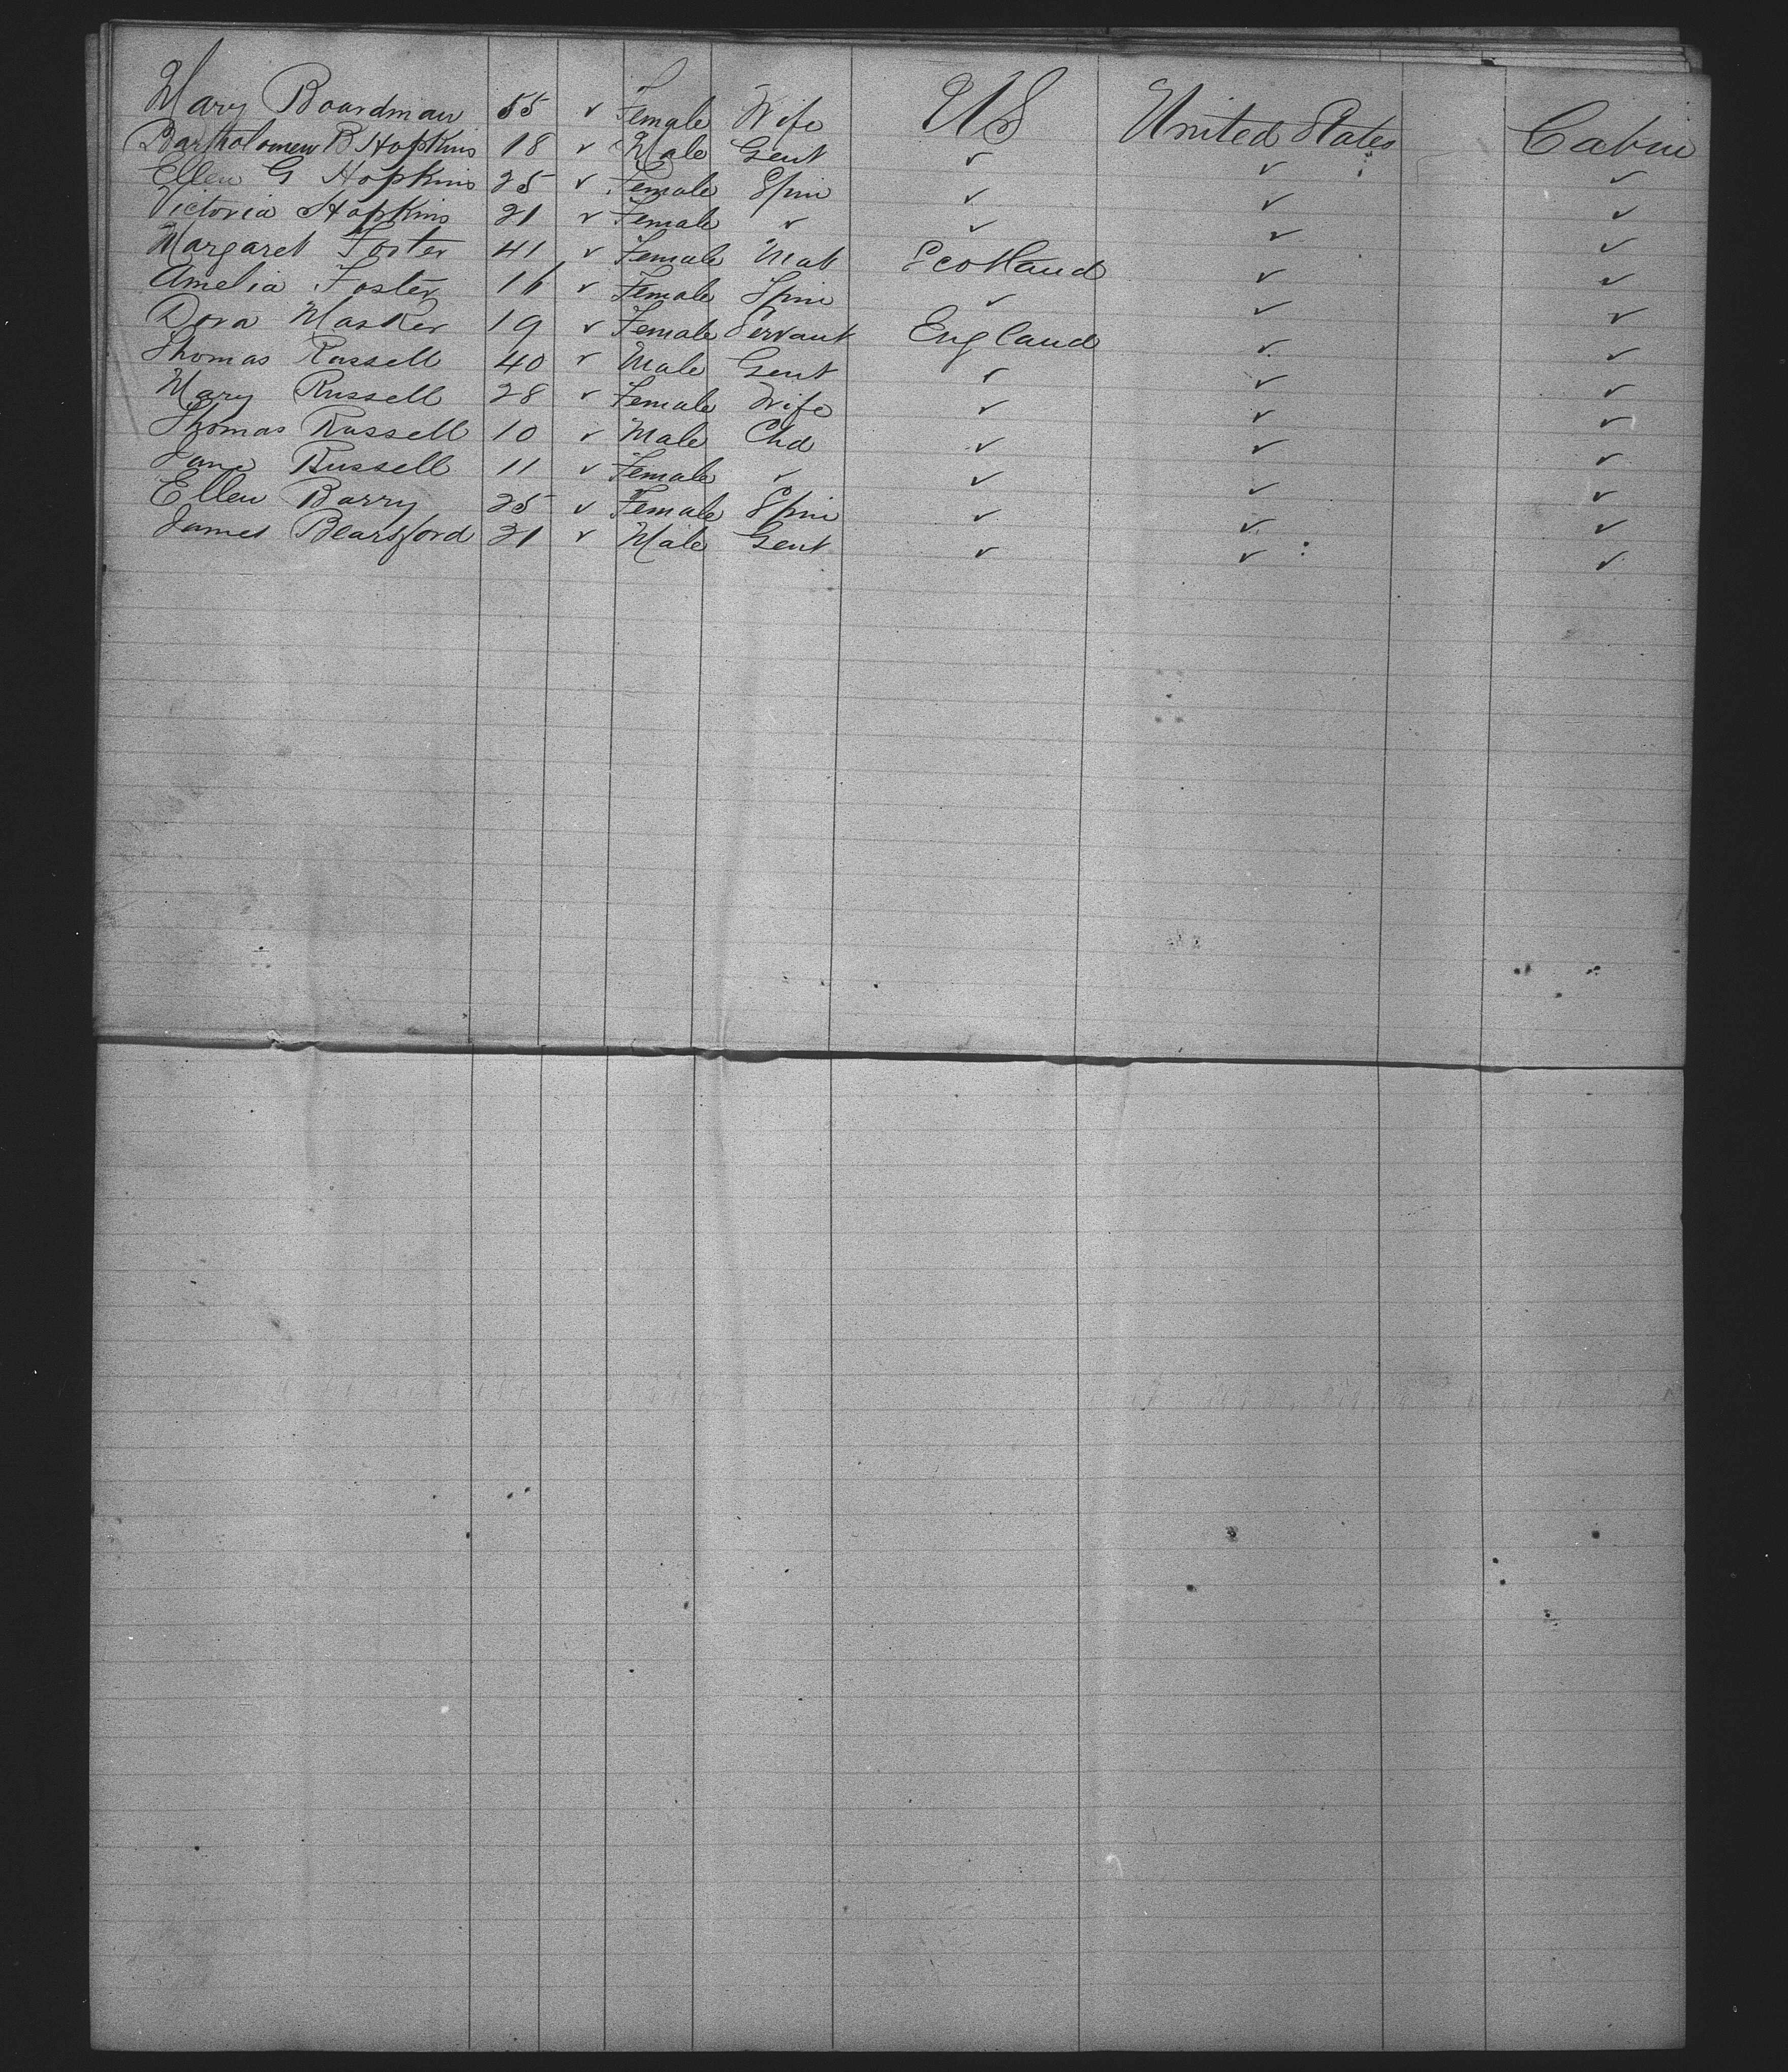 Mary Boardman 55 ✓ Female Wife US United States Cabin
Bartholomew B Hopkins 18 ✓ Male Gent ✓ ✓ ✓
Ellen G Hopkins 25 ✓ Female Spin ✓ ✓ ✓
Victoria Hopkins 21 ✓ Female ✓ ✓ ✓ ✓
Margaret Foster 41 ✓ Female Mat Scotland ✓ ✓
Amelia Foster 16 ✓ Female Spin ✓ ✓ ✓
Dora Masker 19 ✓ Female Servant England ✓ ✓
Thomas Russell 40 ✓ Male Gent ✓ ✓ ✓
Mary Russell 28 ✓ Female Wife ✓ ✓ ✓
Thomas Russell 10 ✓ Male Chd ✓ ✓ ✓
Jane Russell 11 ✓ Female ✓ ✓ ✓ ✓
Ellen Barry 25 ✓ Female Spin ✓ ✓ ✓
James 21 ✓ Male Gent ✓ ✓ ✓